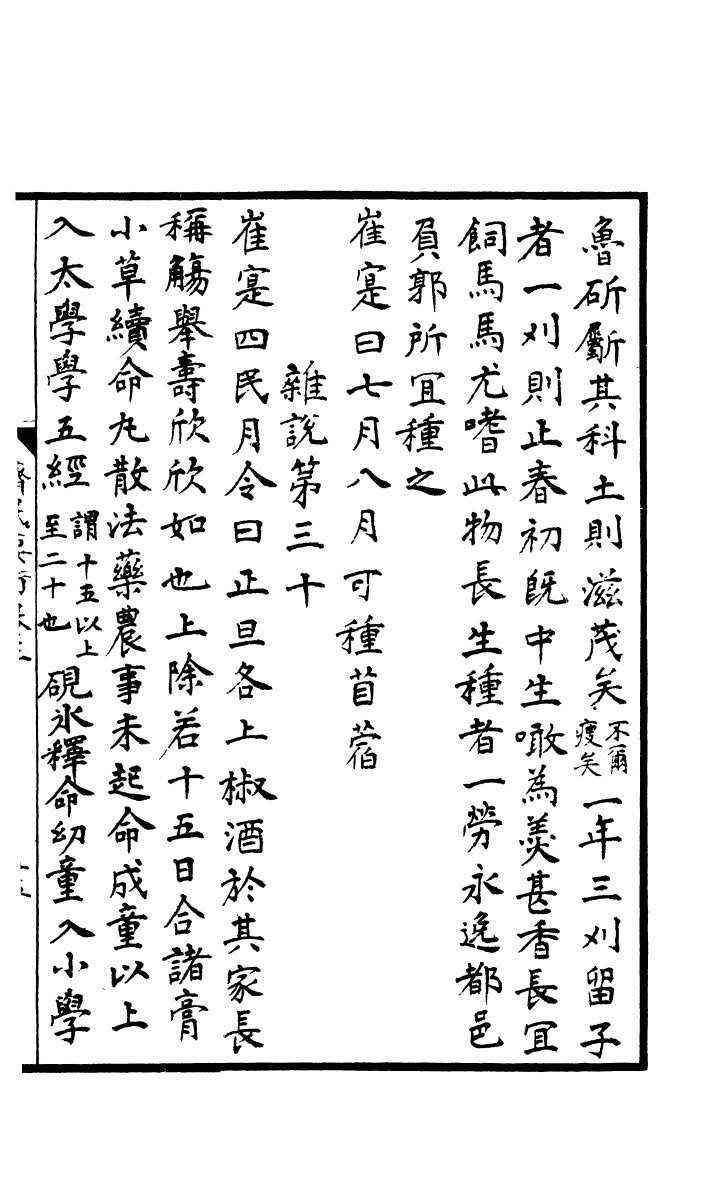 魯斫斸其科土則滋茂矣不爾瘦矣一年三刈留子
者一刈則止春初旣中生噉為羹甚香長冝
飼馬馬尤嗜此物長生種者一勞永逸都邑
負郭所冝種之
崔寔曰七月八月可種苜蓿
雜說第三十
崔寔四民月令曰正旦各上椒酒於其家長
稱觴舉壽欣欣如也上除若十五日合諸膏
小草續命丸散法藥農事未起命成童以上
入太學學五經謂十五以上至二十也硯氷釋命幼童入小學